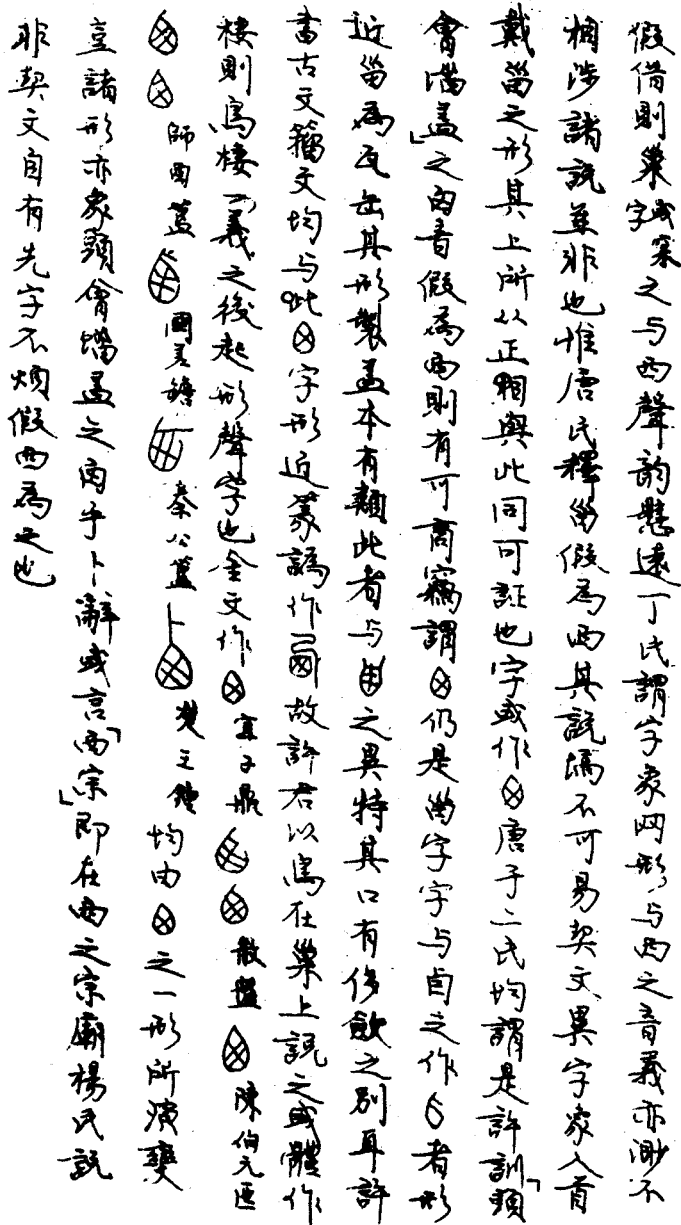 假借則巢字或窠之与西聲韵懸遠丁氏謂字象网形与西之音義亦渺不
相涉諸說並非也惟唐氏釋甾假為西其說塙不可易契文異字象人首
戴甾之形其上所从正相與此同可証也字或作唐于二氏均謂是許訓「頭
會𡿺蓋」之囟音假為西則有可商竊謂仍是甾字字与卣之作者形
近甾為瓦缶其形製蓋本有類此者与之異特其口有侈斂之別耳許
書古文籀文均与此字形近篆譌作故許君以鳥在巢上說之或體作
棲則鳥棲一義之後起形聲字也金文作 㝨子鼎 散盤 陳伯元匜
師酉簋 國差𦉜 秦公簋 楚王鐘 均由之一形所演變
豈諸形亦象頭會𡿺蓋之囟乎卜辭或言「西宗」即在西之宗廟楊氏說
非契文自有先字不煩假西為之也